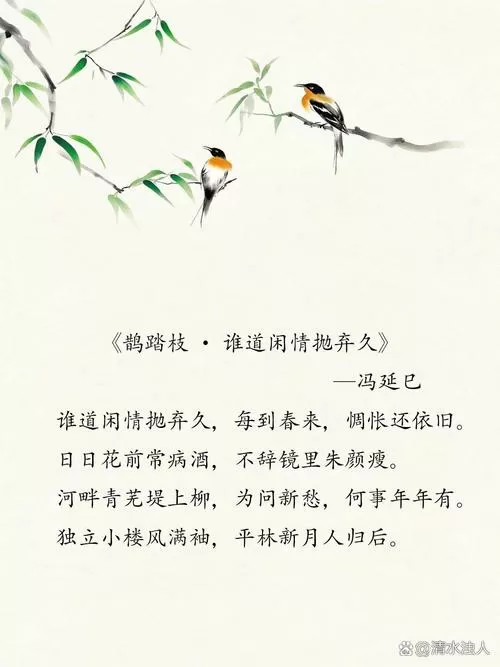 《鹊踏枝 · 谁道闲情抛弃久》
—冯延巳
谁道闲情抛弃久，每到春来，惆怅还依旧。
日日花前常病酒，不辞镜里朱颜瘦。
河畔青芜堤上柳，为问新愁，何事年年有。
独立小楼风满袖，平林新月人归后。
@清水浊人